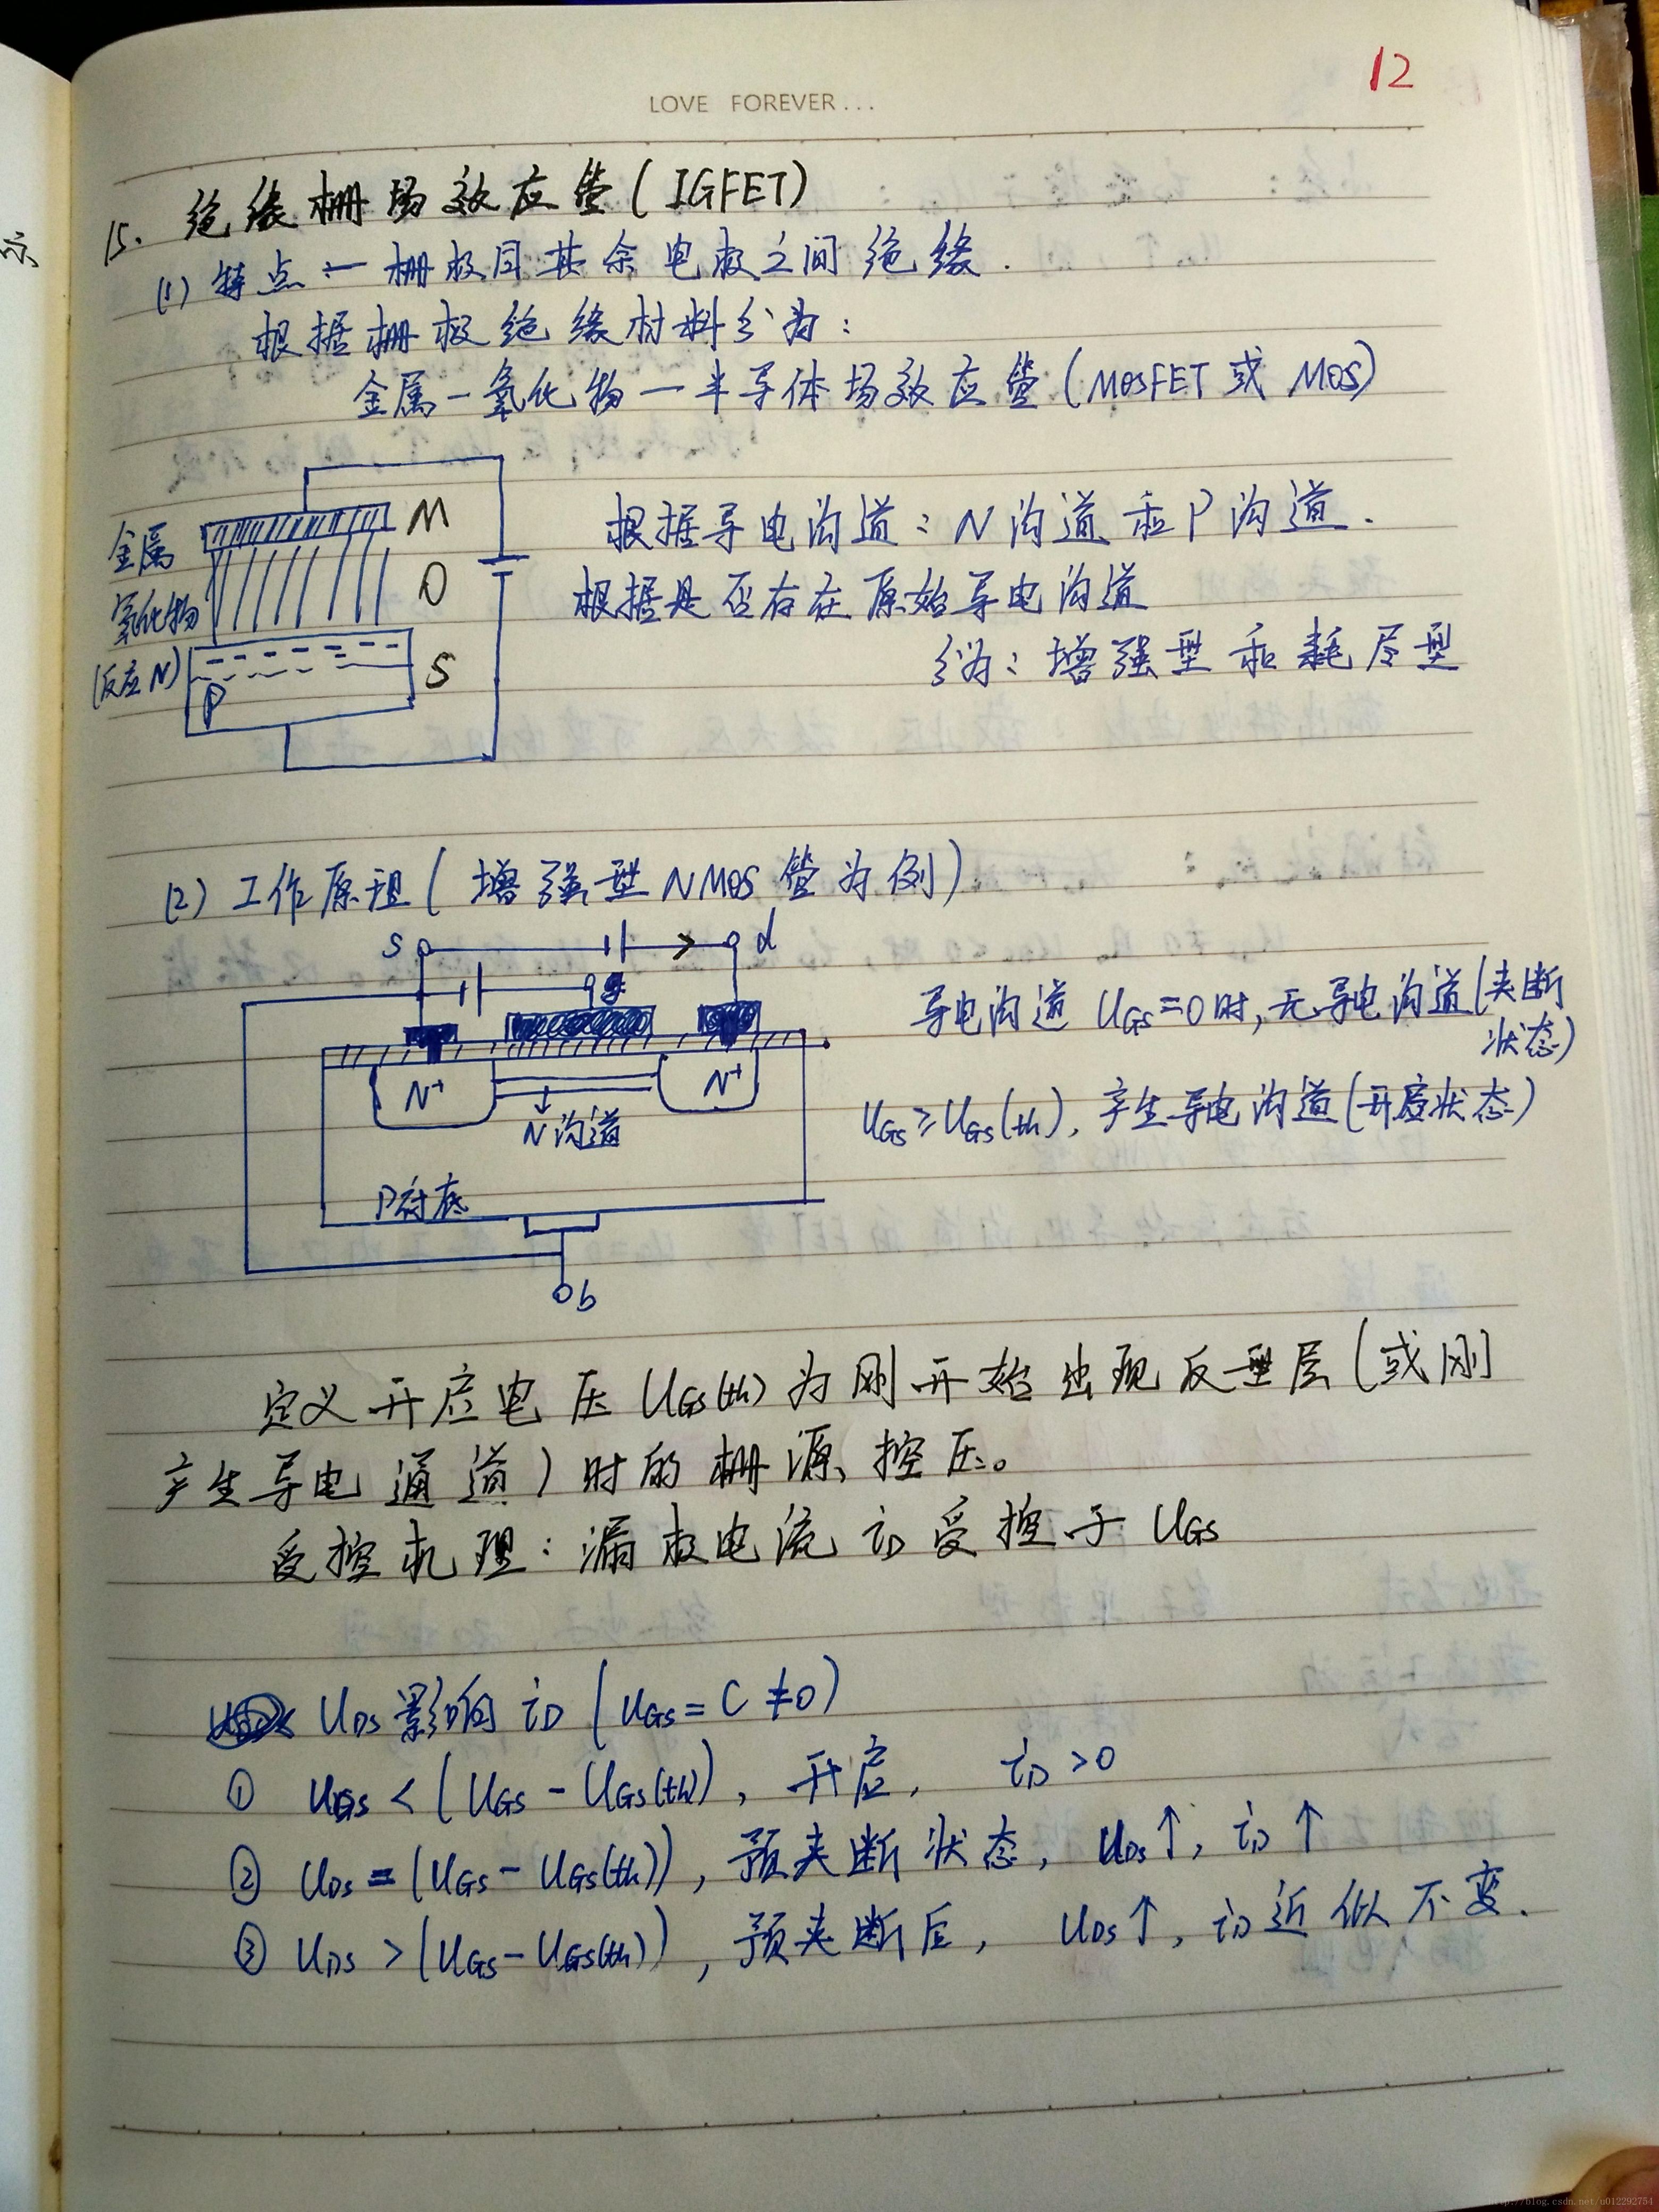 12
LOVE FOREVER...
15. 绝缘栅场效应管(IGFET)
(1) 特点:— 栅极同其余电极之间绝缘.
根据栅极绝缘材料分为:
金属-氧化物-半导体场效应管(MOSFET或MOS)
金属 M
氧化物 O
(反应N) P S
根据导电沟道:N沟道和P沟道.
根据是否存在原始导电沟道
分为:增强型和耗尽型
(2) 工作原理(增强型NMOS管为例)
s d
g
N⁺ N⁺
N沟道
P衬底
b
导电沟道 UGS=0时,无导电沟道(夹断状态)
UGS≥UGS(th),产生导电沟道(开启状态)
定义开应电压UGS(th)为刚开始出现反型层(或刚
产生导电通道)时的栅源控压。
受控机理:漏极电流iD受控于UGS
UDS影响iD(UGS=C≠0)
① UDS<(UGS-UGS(th)),开启,iD>0
② UDS=(UGS-UGS(th)),预夹断状态,UDS↑,iD↑
③ UDS>(UGS-UGS(th)),预夹断后,UDS↑,iD近似不变.
示
http://blog.csdn.net/u012292754